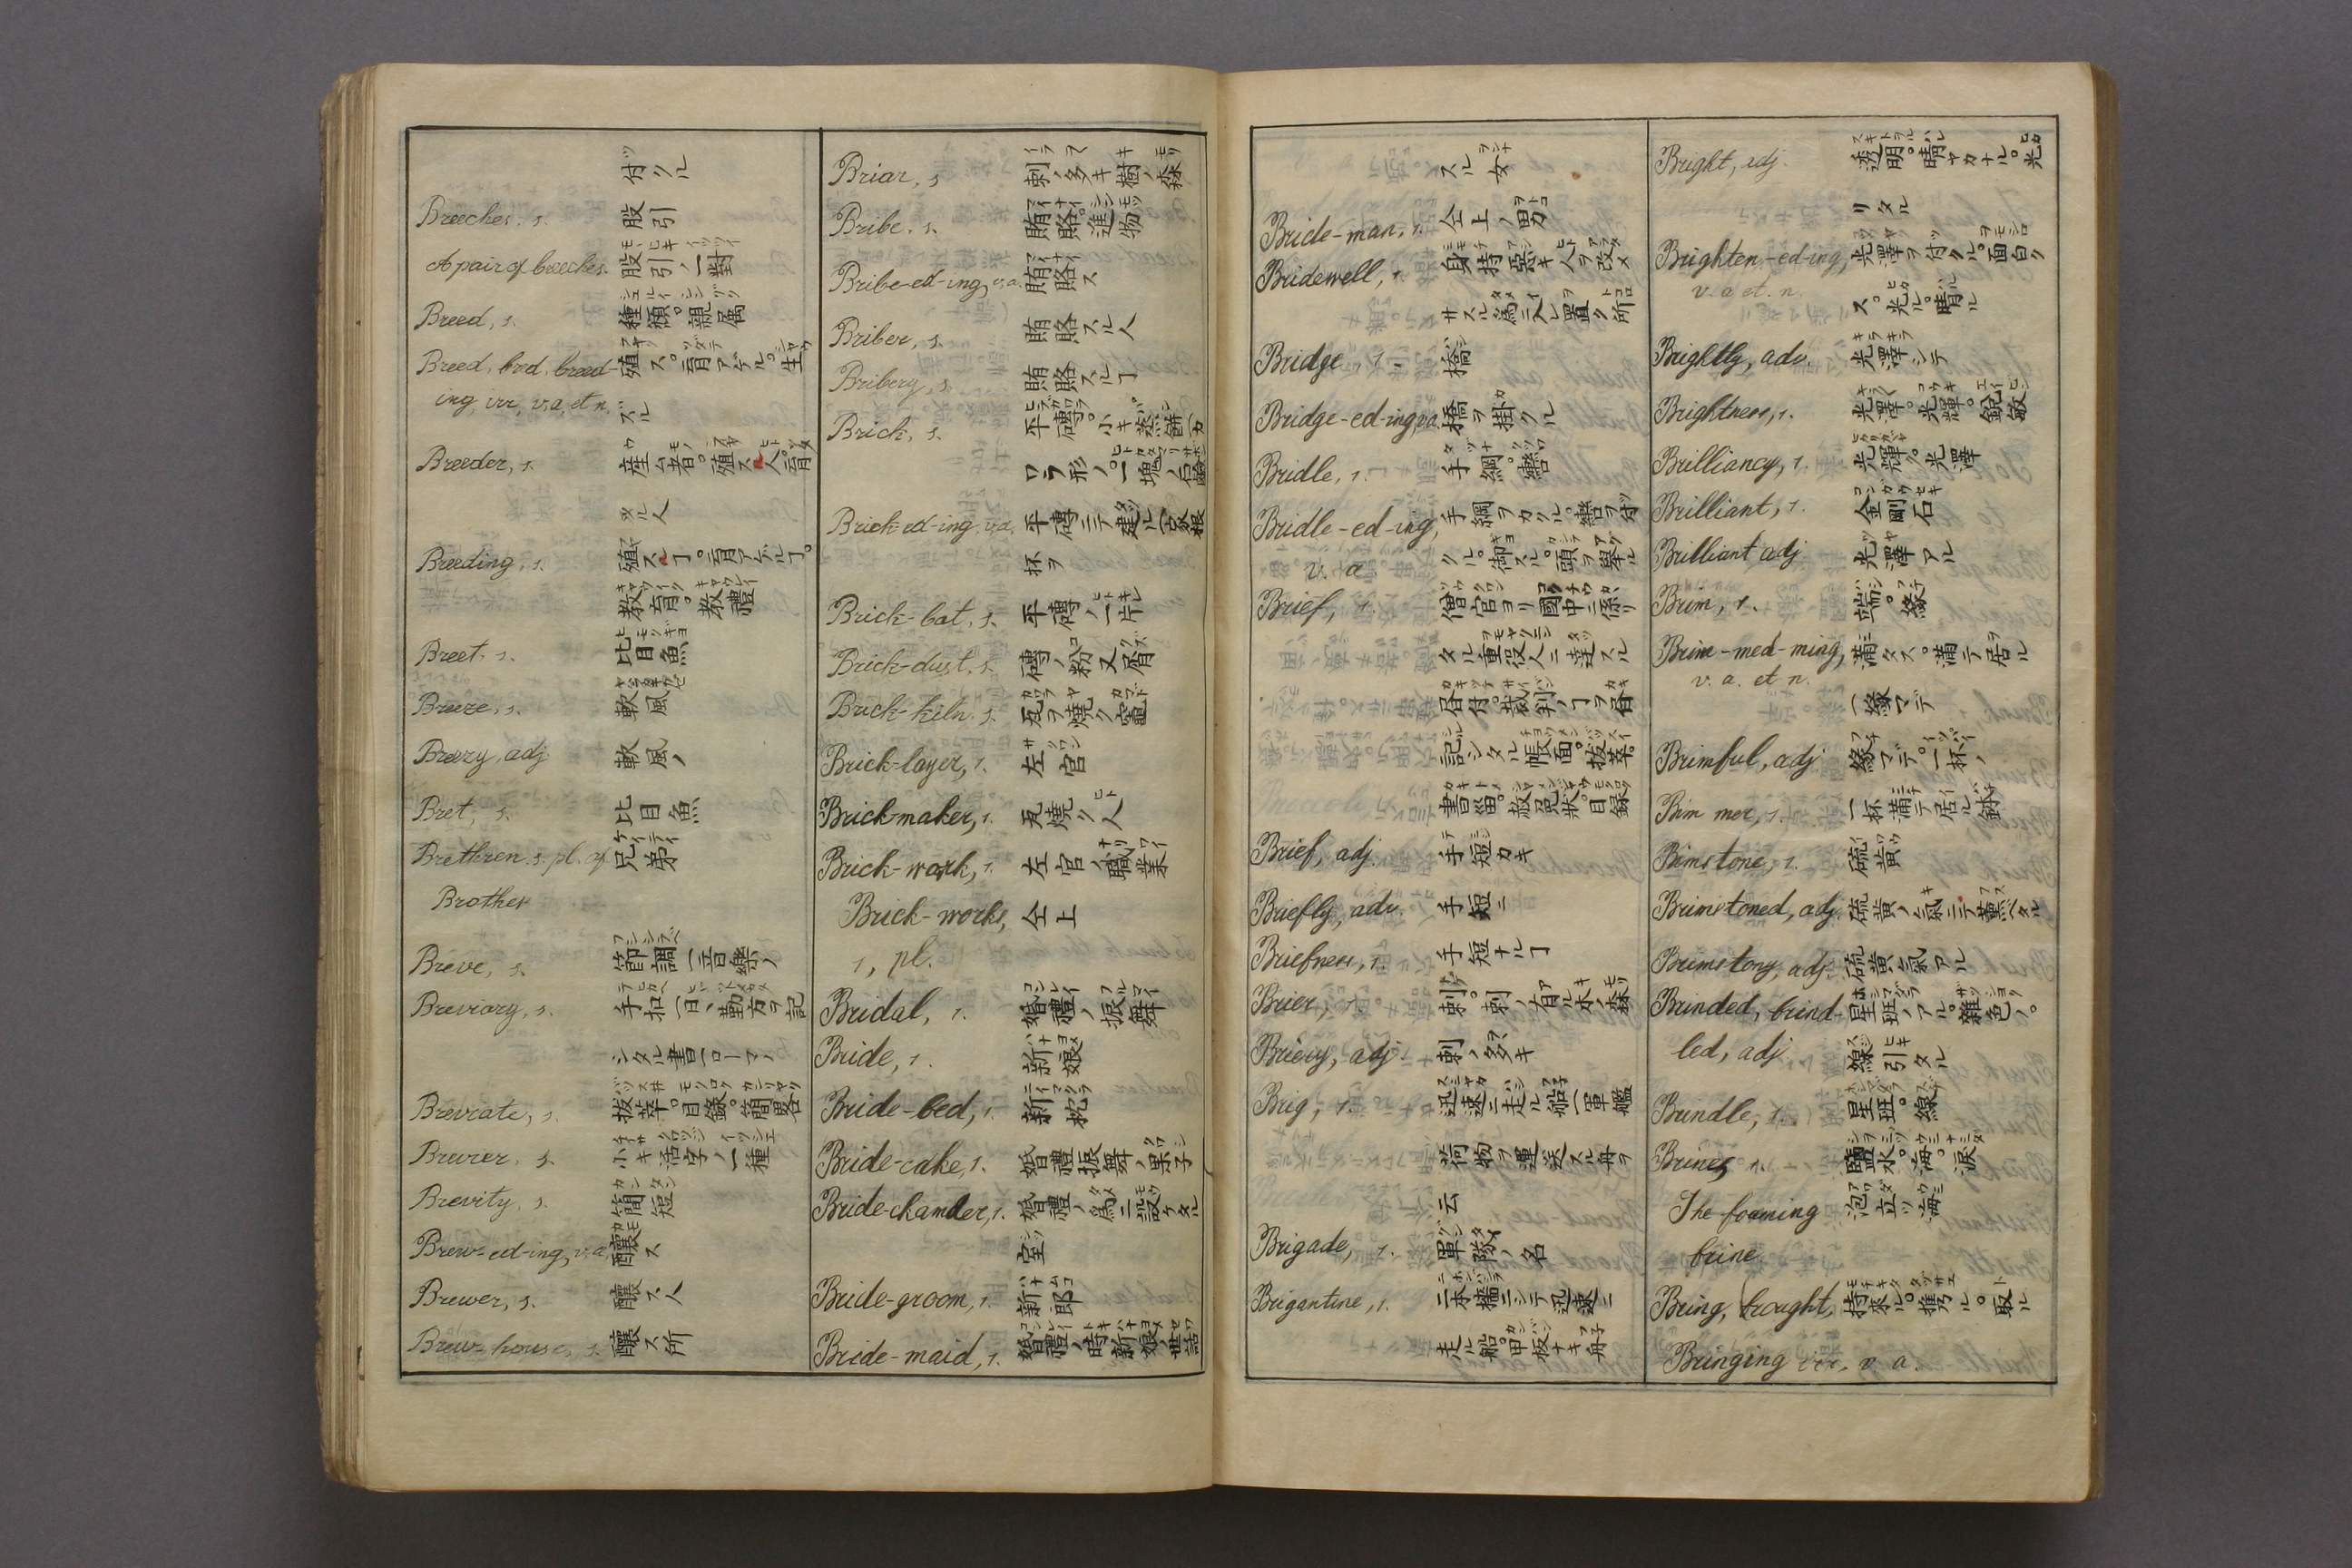 付クル
Breeches. s. 股引
A pair of breeches. 股引ノ一對
Breed, s. 種類。親属
Breed, bred, breed- 殖ス。育アゲル。生
ing, irr, v.a, et n. ズル
Breeder, s. 産ム者。殖ス人。育
タル人
Breeding, s. 殖スヿ。育アゲルヿ。
教育。教禮
Breet. s. 比目魚
Breeze, s. 軟風
Breezy, adj 軟風ノ
Bret, s. 比目魚
Brethren. s. pl. of 兄弟
Brother
Breve, s. 節調(音樂ノ
Breviary, s. 手扣(日〻勤方ヲ記
シタル書(ローマノ
Breviate, s. 拔萃。目錄。簡畧
Brevier. s. 小キ活字ノ一種
Brevity, s. 簡短
Brew-ed-ing, v.a. 釀ス
Brewer, s. 釀ス人
Brew-house, s. 釀ス所
Briar, s 刺ノ多キ樹ノ森
Bribe. s. 賄賂。進物
Bribe-ed-ing, v.a. 賄賂ス
Briber, s. 賄賂スル人
Bribery, s. 賄賂スルヿ
Brick, s. 平磚。小キ蒸餅(カ
ワラ形ノ。一塊ノ石鹼
Brick-ed-ing. v.a. 平磚ニテ建ル(家根
抔ヲ
Brick-bat. s. 平磚ノ一片
Brick-dust, s. 磚ノ粉又屑
Brick-kiln. s. 瓦ヲ燒ク竈
Brick-layer, s. 左官
Brick-maker, s. 瓦燒ク人
Brick-work, s. 左官ノ職業
Brick-works, 仝上
s, pl.
Bridal, s. 婚禮ノ振舞
Bride, s. 新娘
Bride-bed, s. 新枕
Bride-cake, s. 婚禮振舞ノ果子
Bride-chamber, s. 婚禮ノ為ニ設ケタル
室
Bride-groom, s. 新郎
Bride-maid, s. 婚禮ノ時新娘ノ世話
スル女
Bride-man, s. 仝上ノ男
Bridewell, s. 身持惡キ人ヲ改メ
サスル為ニ入レ置ク所
Bridge s. 橋
Bridge-ed-ing, v.a. 橋ヲ掛クル
Bridle, s. 手綱。轡
Bridle-ed-ing, 手綱ヲカクル。轡ヲ付
v. a クル。御スル。頭ヲ擧ル
Brief, s. 僧官ヨリ國中ニ係リ
タル重役人ニ達スル
書付。裁判ノヿヲ書
記シタル帳面。拔萃。
書畄。赦免狀。目錄
Brief, adj. 手短カキ
Briefly, adv. 手短ニ
Briefness, s. 手短ナルヿ
Brier, s. 刺。刺ノ有ル木ノ森
Briery, adj. 刺ノ多キ
Brig, s. 迅速ニ走ル船(軍艦
荷物ヲ運送スル舟ヲ
云
Brigade, s. 軍隊ノ名
Brigantine, s. 二本檣ニシテ迅速ニ
走ル船。甲板ナキ舟
Bright, adj. 透明。晴ヤカナル。光
リタル
Brighten-ed-ing, 光澤ヲ付クル。面白ク
v. a et. n. ス。光ル。晴ル
Brightly, adv. 光澤シテ
Brightness, s. 光澤。光輝。銳敏
Brilliancy, s. 光輝。光澤
Brilliant, s. 金剛石
Brilliant adj 光澤アル
Brim, s. 端。緣
Brim-med-ming, 滿タス。滿テ居ル
v. a. et n. (緣マデ
Brimful, adj 緣マデ。一杯ノ
Bim mer, s. 一杯滿テ居ル鉢
Bimstone, s. 硫黄
Brimstoned, adj. 硫黄ノ氣ニテ薫ベタル
Brimstony, adj. 硫黄氣アル
Brinded, brind- 星班ノアル。雜色ノ。
led, adj. 線引タル
Brindle, s. 星班。線
Brine, s. 鹽水。海。淚
The foaming 泡立ツ海
brine.
Bring, brought, 持來ル。携ル。取ル
Bringing irr, v. a.